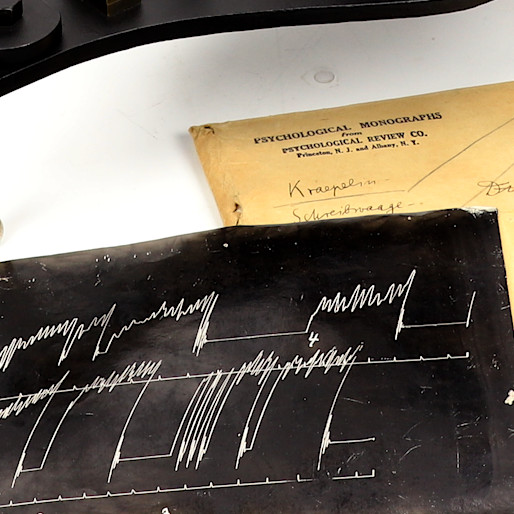 PSYCHOLOGICAL MONOGRAPHS
from
PSYCHOLOGICAL REVIEW CO.
Princeton, N. J. and Albany, N. Y.
Kraepelin
Schreibwaage
4